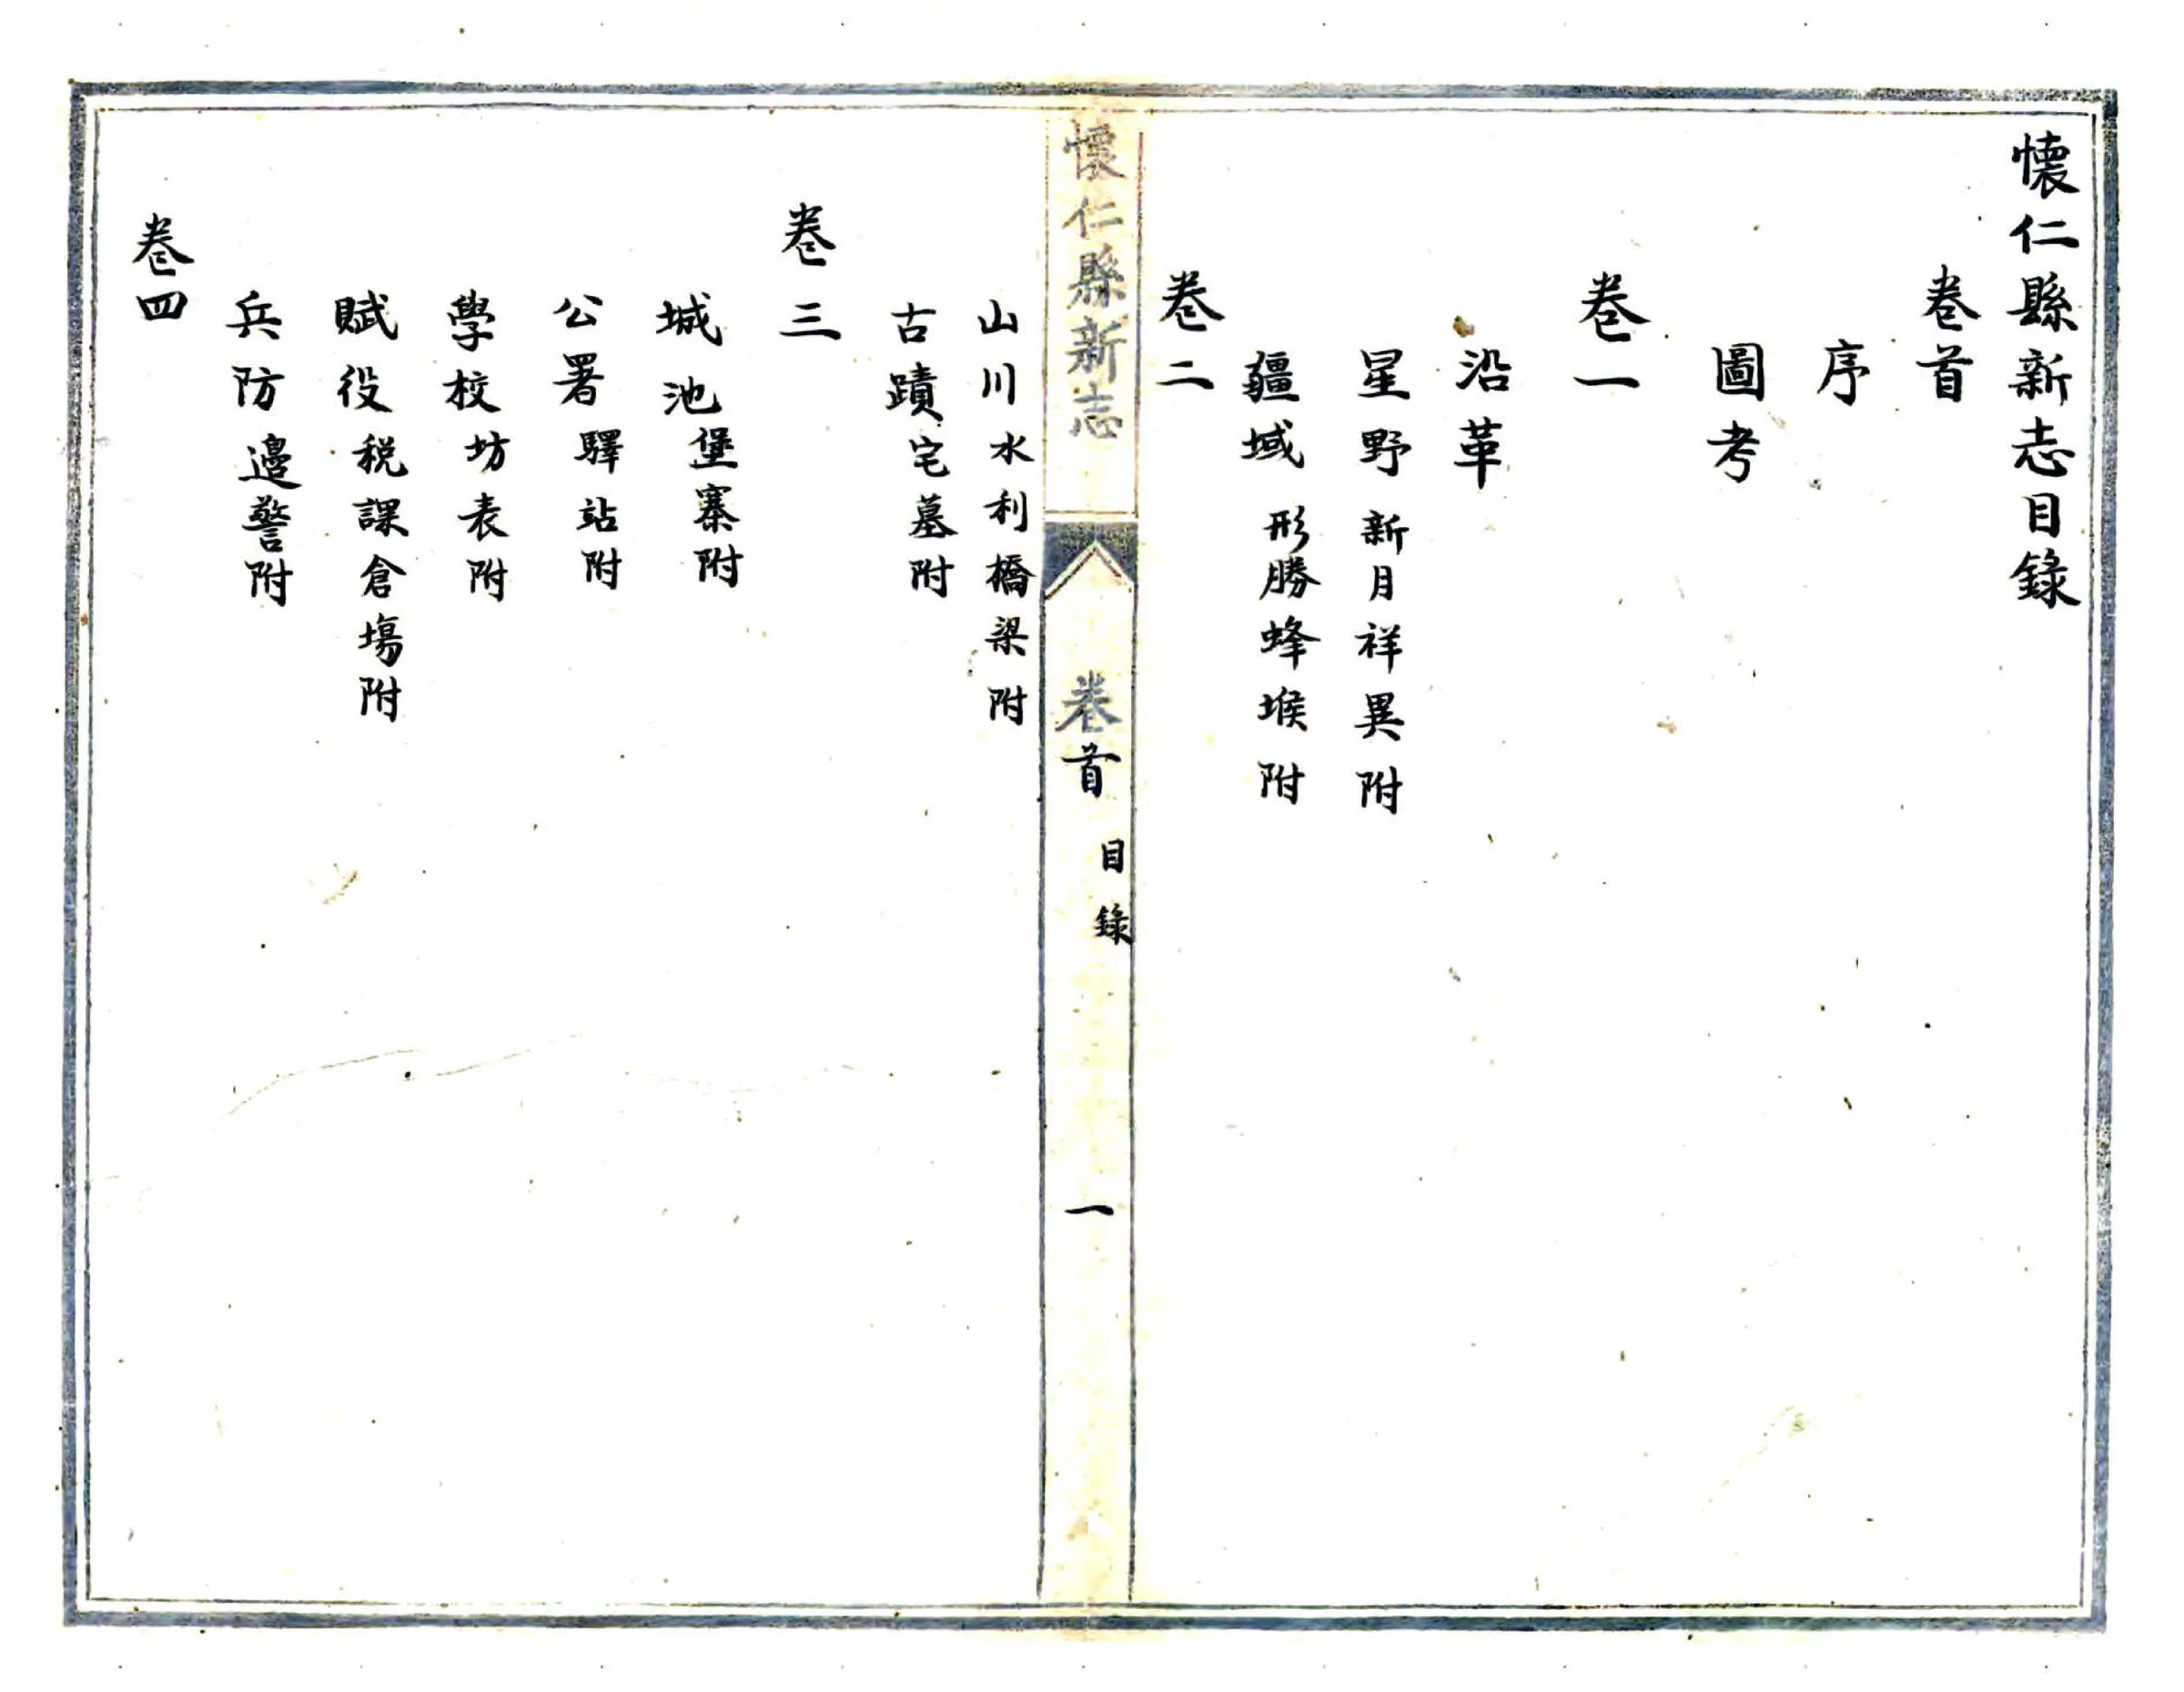 懷仁縣新志目錄
卷首
序
圖考
卷一
沿革
星野 新月祥異附
疆域 形勝蜂堠附
卷二
懷仁縣新志
卷首
目錄
一
山川 水利橋梁附
古蹟 宅墓附
卷三
城池 堡寨附
公署 驛站附
學校 坊表附
賦役 税課倉塲附
兵防 邉警附
卷四